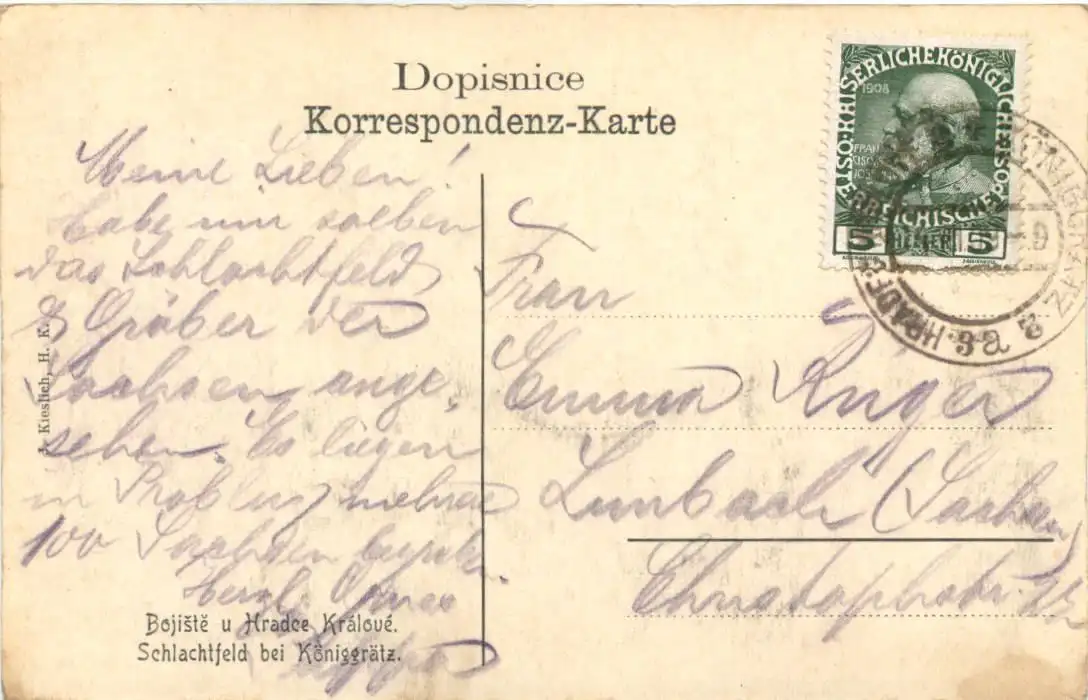 Dopisnice
Korrespondenz-Karte
Meine Lieben!
habe nun soeben
das Schlachtfeld
& Gräber der
Sachsen ange-
sehen. Es liegen
in Problus mehrere
100 Sachsen
Herzl.
J. Kieslich, H. K.
Bojiště u Hradce Králové.
Schlachtfeld bei Königgrätz.
KAISERLICHE KÖNIGLICHE ÖSTERREICHISCHE POST
1908
FRANZ
5 HELLER 5
KÖNIGGRÄTZ
HRADEC
Frau
Emma Ruger
Limbach (Sachsen
Christophstr.